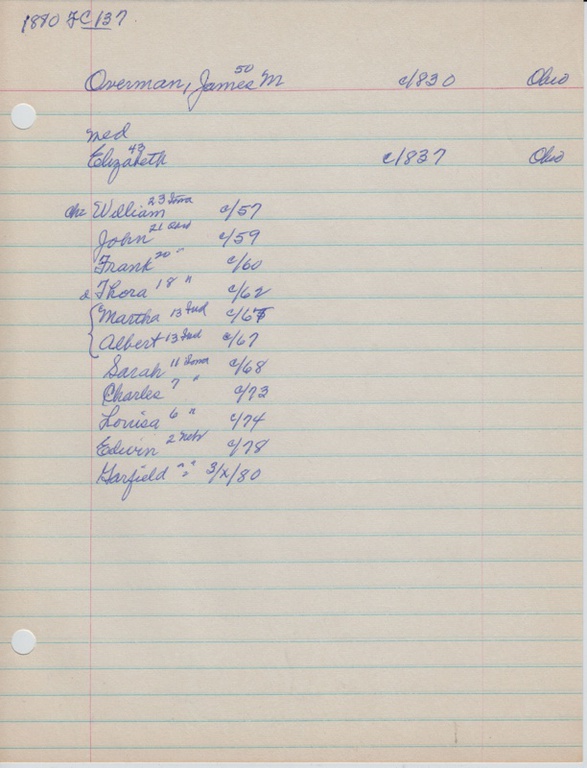 1880 FC 137
Overman, James M 50 c/830 Ohio
med
Elizabeth 43 c/837 Ohio
Chz William 23 Iowa c/57
John 21 c/59
Frank 20 " c/60
d Thora 18 " c/62
Martha 13 Ind c/67
Albert 13 Ind c/67
Sarah 11 Iowa c/68
Charles 7 " c/73
Louisa 6 " c/74
Edwin 2 Nebr c/78
Garfield " " 3/x/80